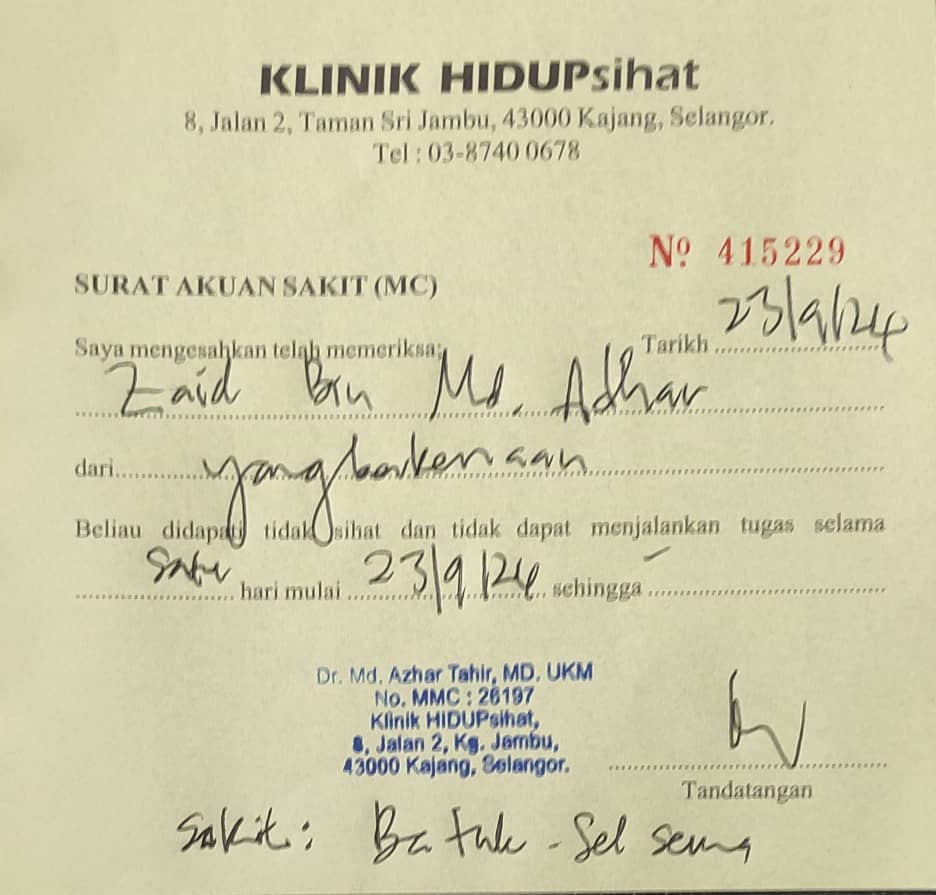 KLINIK HIDUPsihat
8, Jalan 2, Taman Sri Jambu, 43000 Kajang, Selangor.
Tel : 03-8740 0678
Nº 415229
SURAT AKUAN SAKIT (MC)
Tarikh 23/9/24
Saya mengesahkan telah memeriksa;
Zaid Bin Md. Adhar
dari yang berkenaan
Beliau didapati tidak sihat dan tidak dapat menjalankan tugas selama
Satu hari mulai 23/9/24 sehingga -
Dr. Md. Azhar Tahir, MD. UKM
No. MMC : 26197
Klinik HIDUPsihat,
8, Jalan 2, Kg. Jambu,
43000 Kajang, Selangor.
Tandatangan
Sakit : Batuk - Selsema